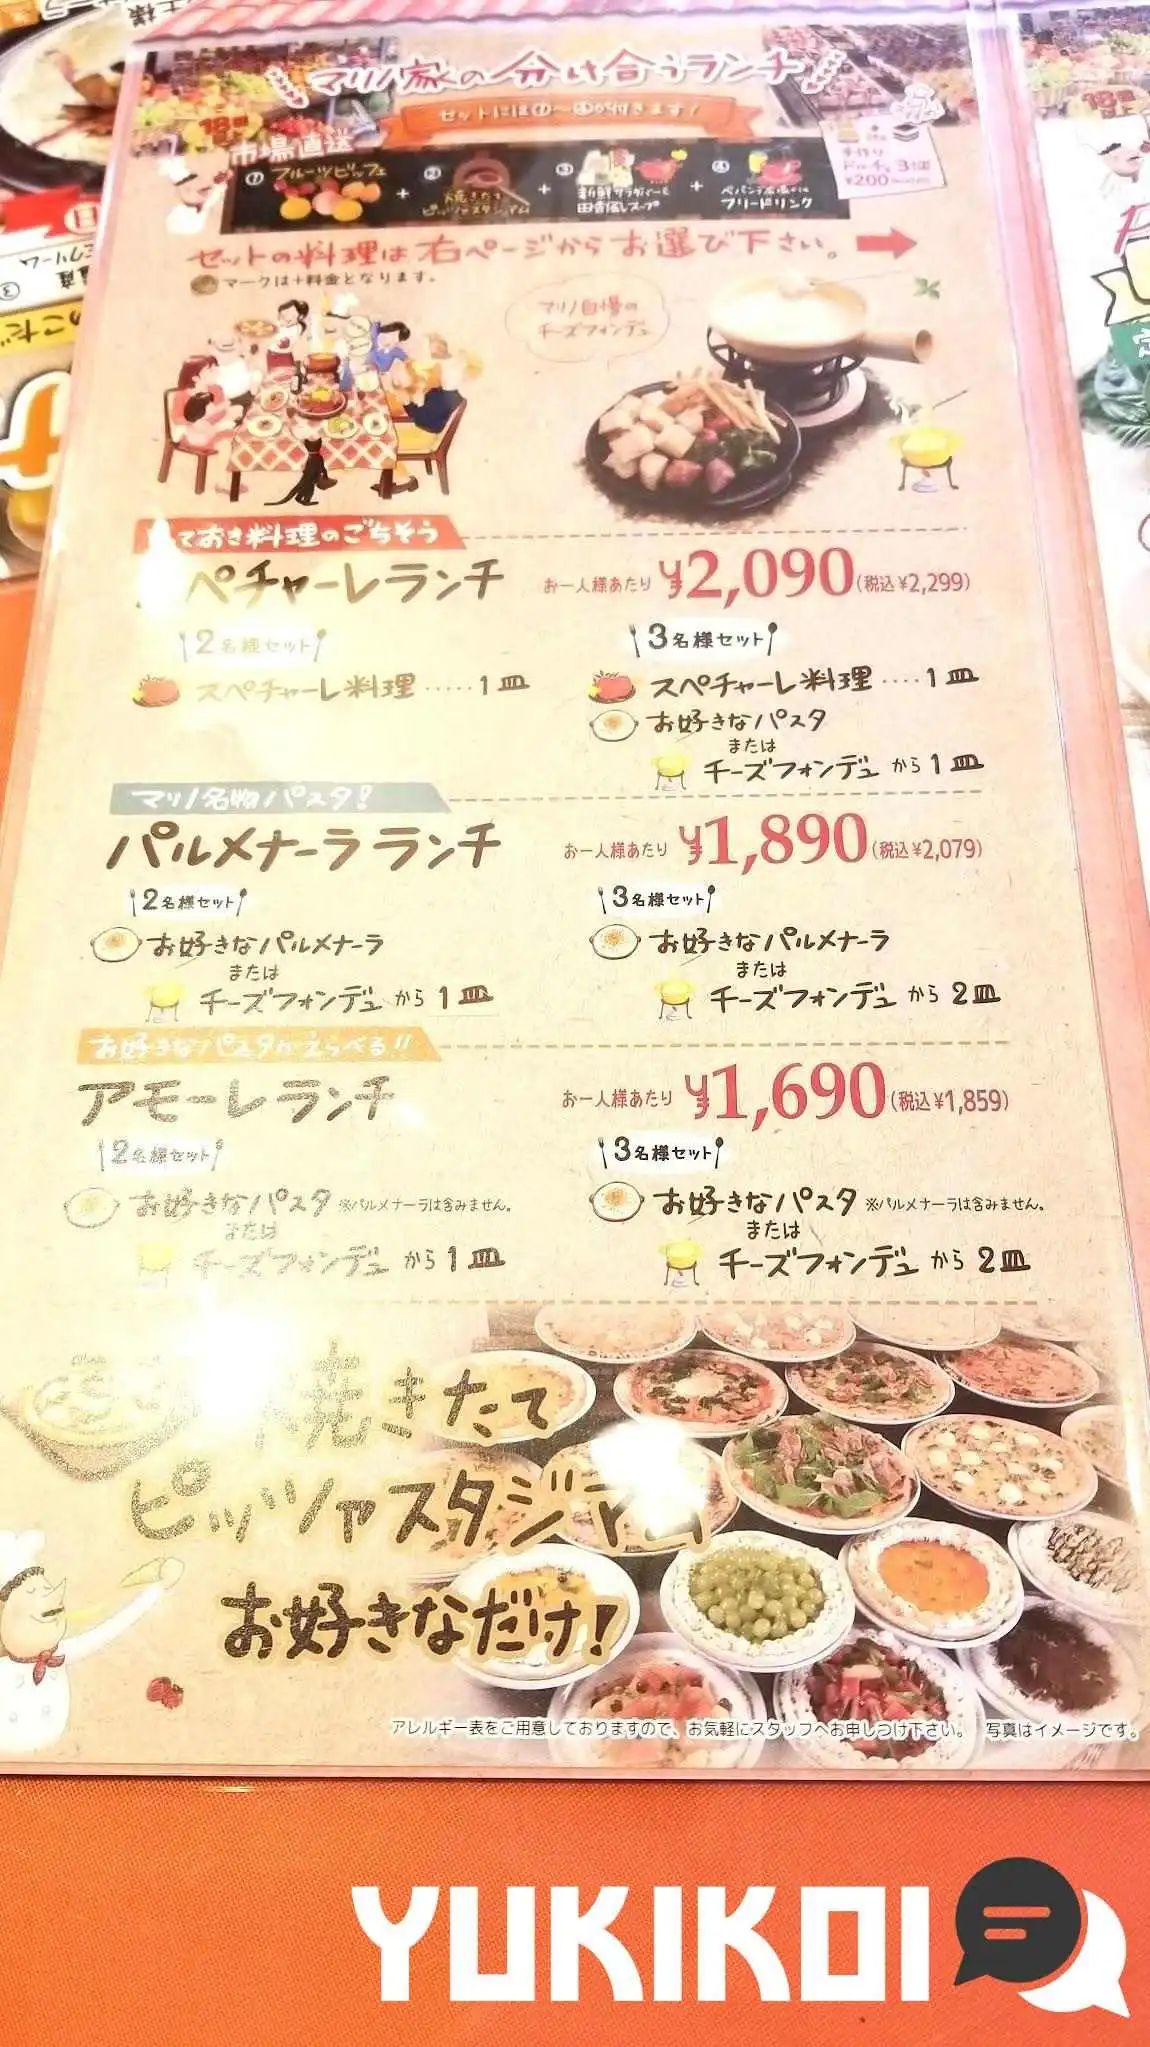 マリノ家の分け合うランチ
セットには①〜④が付きます!
市場直送
① フルーツビュッフェ + ② 焼きたてピッツァスタジアム + ③ + ④ フリードリンク
田舎風スープ
手作り
ドルチェ3個
¥200
セットの料理は右ページからお選び下さい。
マークは+料金となります。
マリノ自慢の
チーズフォンデュ
ておき料理のごちそう
ペチャーレランチ お一人様あたり ¥2,090(税込¥2,299)
2名様セット
スペチャーレ料理・・・・・1皿
3名様セット
スペチャーレ料理・・・・1皿
お好きなパスタ
または
チーズフォンデュから1皿
マリノ名物パスタ!
パルメナーラランチ お一人様あたり ¥1,890(税込¥2,079)
2名様セット
お好きなパルメナーラ
または
チーズフォンデュから1皿
3名様セット
お好きなパルメナーラ
または
チーズフォンデュから2皿
お好きなパスタがえらべる!!
アモーレランチ お一人様あたり ¥1,690(税込¥1,859)
2名様セット
お好きなパスタ ※パルメナーラは含みません。
または
チーズフォンデュから1皿
3名様セット
お好きなパスタ ※パルメナーラは含みません。
または
チーズフォンデュから2皿
焼きたて
ピッツァスタジアム
お好きなだけ!
アレルギー表をご用意しておりますので、お気軽にスタッフへお申しつけ下さい。 写真はイメージです。
YUKIKOI